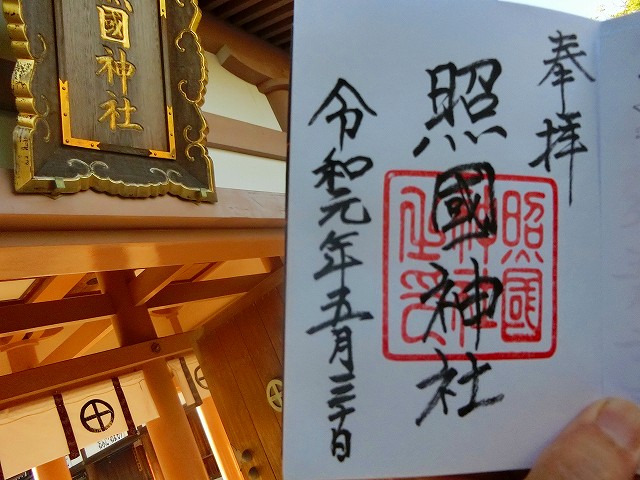 奉拝
照國神社
照國神社之印
令和元年五月三十日
國神社